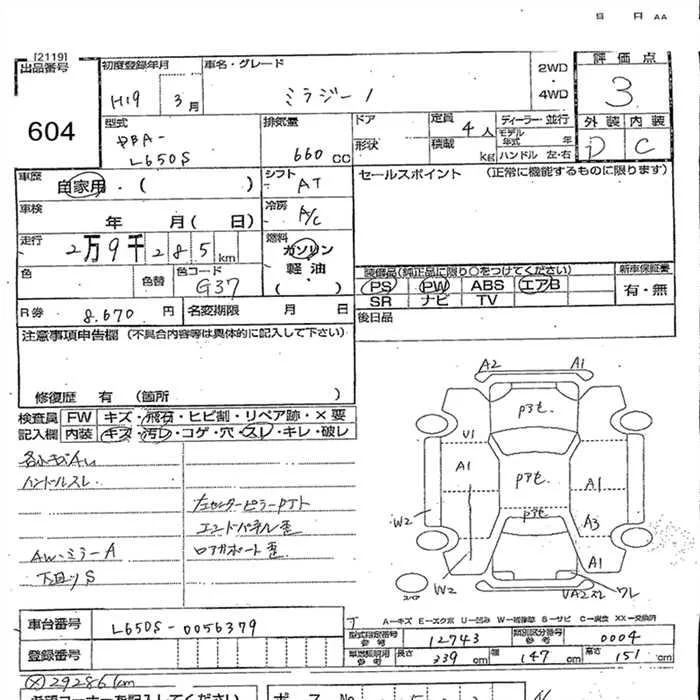 月 日 AA
[2119]
出品番号 初度登録年月 車名・グレード 2WD・4WD 評価点
604
H19 3月 ミラジーノ 3
型式 排気量 ドア 定員 4人 ディーラー・並行 外装 内装
DBA-
L650S 660 CC 形状 積載 kg モデル年式 年 ハンドル 左・右 D C
車歴 自家用・( ) シフト AT セールスポイント (正常に機能するものに限ります)
車検 年 月( 日) 冷房 A/C
走行 2万9千285km 燃料 ガソリン・軽油・( )
色 色替 色コード G37 装備品(純正品に限り○をつけてください) 新車保証書
PS PW ABS エアB 有・無
SR ナビ TV
R券 8,670円 名変期限 月 日 後日品
注意事項申告欄 (不具合内容等は具体的に記入して下さい)
修復歴 有 (箇所 )
検査員 FW キズ・飛石・ヒビ割・リペア跡・×要
記入欄 内装 キズ・汚レ・コゲ・穴・スレ・キレ・破レ
各小キズAU
ハンドルスレ
左センターピラーPタト
エンドパネル歪
AW・ミラーA ロアサポート歪
下回りS
A2 A1
P3セ
U1
A1 Pアセ A1
Pアセ
W2 A3
A1
W2 VA2スレ ワレ
スペア
A―キズ E―エクボ U―凹み W―補修跡 S―サビ C―腐食 XX―交換済
車台番号 L650S-0056379
型式指定番号 参考 12743 類別区分番号 参考 0004
登録番号
車庫証明用 参考 長さ 339cm 幅 147cm 高さ 151cm
(X)29286km